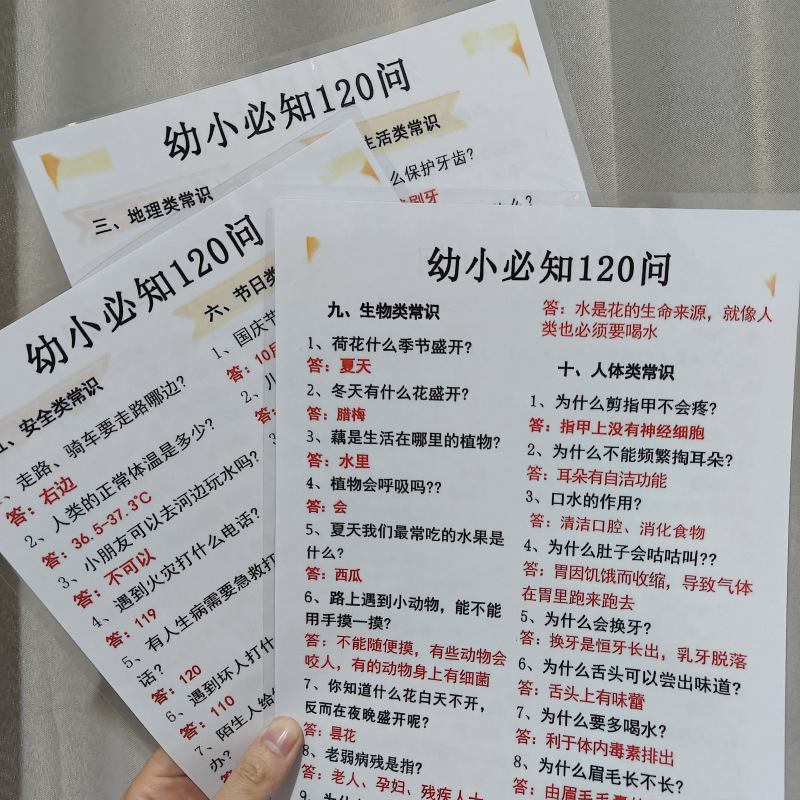 幼小必知120问
三、地理类常识
生活类常识
么保护牙齿?
刷牙
幼小必知120问
安全类常识
走路、骑车要走路哪边?
答：右边
2、人类的正常体温是多少?
答：36.5-37.3℃
3、小朋友可以去河边玩水吗?
答：不可以
4、遇到火灾打什么电话?
答：119
5、有人生病需要急救打
话?
答：120
6、遇到坏人打什
答：110
7、陌生人给
办?
答
六、节日类
1、国庆节
答：10月
2、儿
答：
3
幼小必知120问
九、生物类常识
1、荷花什么季节盛开?
答：夏天
2、冬天有什么花盛开?
答：腊梅
3、藕是生活在哪里的植物?
答：水里
4、植物会呼吸吗??
答：会
5、夏天我们最常吃的水果是
什么?
答：西瓜
6、路上遇到小动物，能不能
用手摸一摸?
答：不能随便摸，有些动物会
咬人，有的动物身上有细菌
7、你知道什么花白天不开，
反而在夜晚盛开呢?
答：昙花
8、老弱病残是指?
答：老人、孕妇、残疾人士
答：水是花的生命来源，就像人
类也必须要喝水
十、人体类常识
1、为什么剪指甲不会疼?
答：指甲上没有神经细胞
2、为什么不能频繁掏耳朵?
答：耳朵有自洁功能
3、口水的作用?
答：清洁口腔、消化食物
4、为什么肚子会咕咕叫??
答：胃因饥饿而收缩，导致气体
在胃里跑来跑去
5、为什么会换牙?
答：换牙是恒牙长出，乳牙脱落
6、为什么舌头可以尝出味道?
答：舌头上有味蕾
7、为什么要多喝水?
答：利于体内毒素排出
8、为什么眉毛长不长?
答：由眉毛毛囊